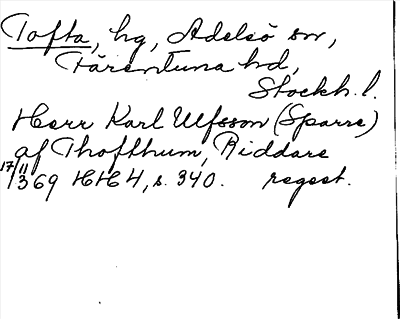 Tofta, hg, Adelsö sn,
Färentuna hd,
Stockh. l.
Herr Karl Ulfsson (Sparre)
af Thoffthum, Riddare
17/11 1369 HH 4, s. 340. regest.